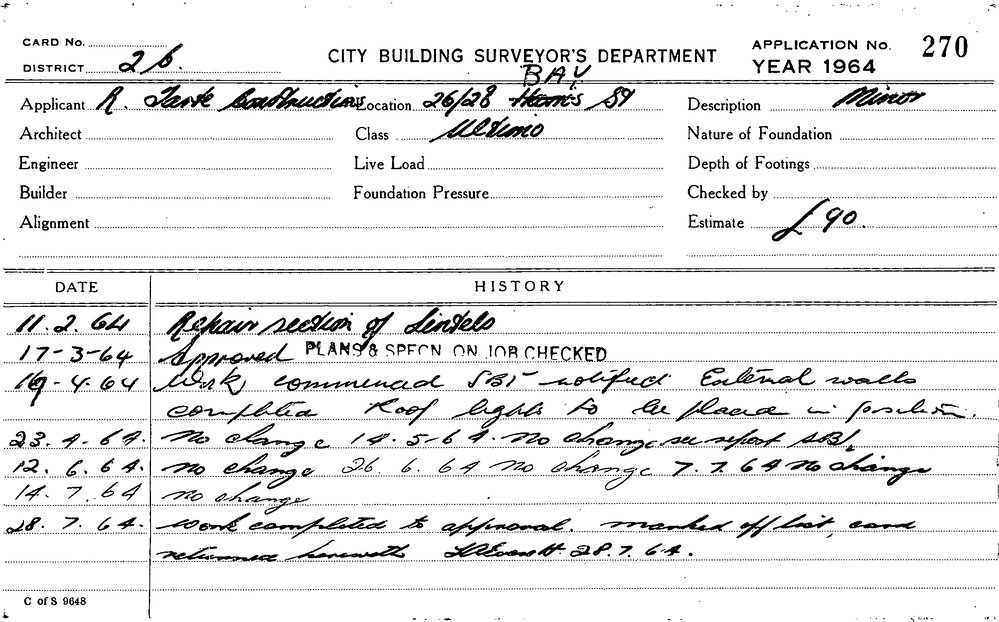 CARD No.
DISTRICT 2b.
CITY BUILDING SURVEYOR'S DEPARTMENT
APPLICATION No. 270
YEAR 1964
BAY
Applicant R. Construction Location 26/28 Harris St Description Minor
Architect Class Ultimo Nature of Foundation
Engineer Live Load Depth of Footings
Builder Foundation Pressure Checked by
Alignment Estimate £90.
DATE HISTORY
11.2.64 Repair section of Lintels
17-3-64 Approved PLANS & SPECN ON JOB CHECKED
16-4-64 Work commenced SBI notified External walls
completed Roof lights to be placed in position.
23.4.64. No change 14.5.64. No change see report SBI
12.6.64. no change 26.6.64 no change 7.7.64 no change
14.7.64 no change
28.7.64. work completed to approval. marked off list, card
returned herewith 28.7.64.
C of S 9648